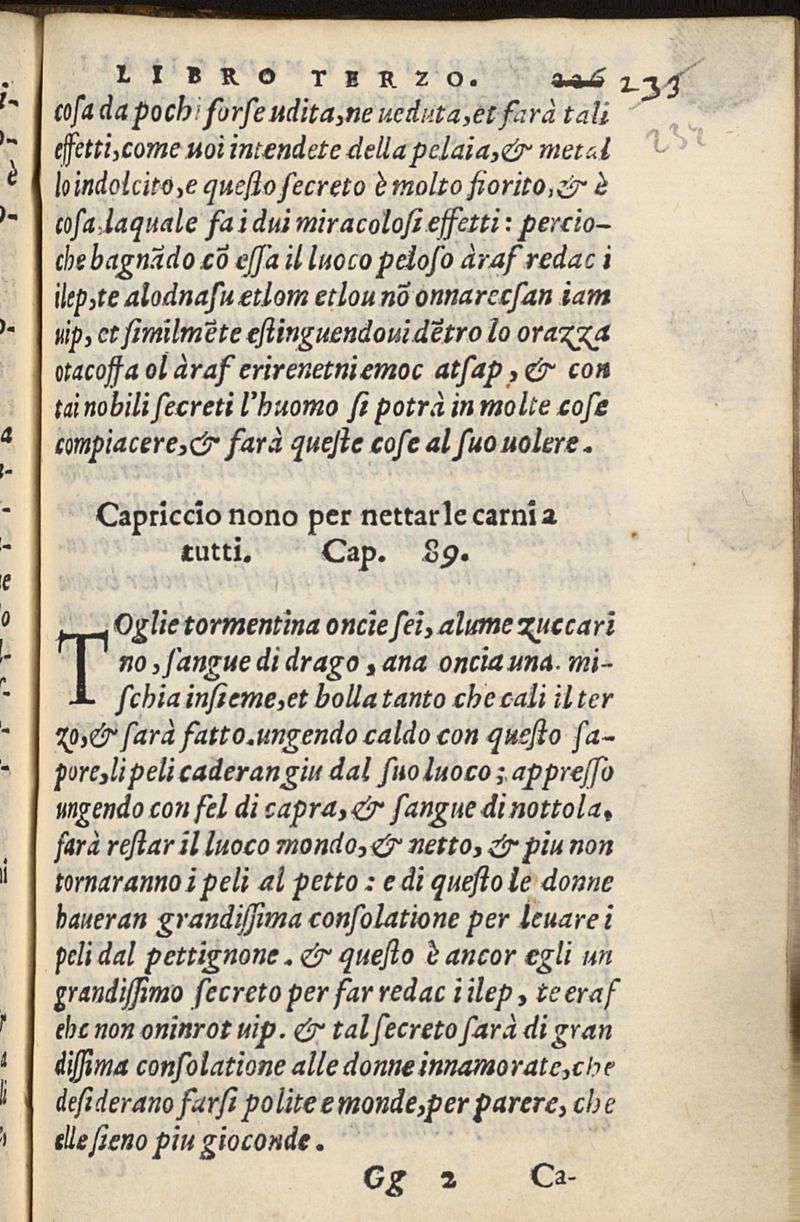 LIBRO TERZO. 226 233
232
cosa da pochi forse udita, ne ueduta, et farà tali
effetti, come uoi intendete della pelaia, & metal
lo indolcito, e questo secreto è molto fiorito, & è
cosa, laquale fa i dui miracolosi effetti: percio-
che bagnādo cō essa il luoco peloso àraf redac i
ilep, te alodnasu etlom etlou nō onnarecsan iam
uip, et similmēte estinguendoui dētro lo orazza
otacoffa ol àraf erirenetni emoc atsap, & con
tai nobili secreti l'huomo si potrà in molte cose
compiacere, & farà queste cose al suo uolere.
Capriccio nono per nettar le carni a
tutti. Cap. 89.
TOglie tormentina oncie sei, alume zuccari
no, sangue di drago, ana oncia una. mi-
schia insieme, et bolla tanto che cali il ter
zo, & sarà fatto. ungendo caldo con questo sa-
pore, li peli caderan giu dal suo luoco; appresso
ungendo con fel di capra, & sangue di nottola,
farà restar il luoco mondo, & netto, & piu non
tornaranno i peli al petto: e di questo le donne
haueran grandissima consolatione per leuare i
peli dal pettignone. & questo è ancor egli un
grandissimo secreto per far redac i ilep, te eraf
ehc non oninrot uip. & tal secreto sarà di gran
dissima consolatione alle donne innamorate, che
desiderano farsi polite e monde, per parere, che
elle sieno piu gioconde.
Gg 2 Ca-